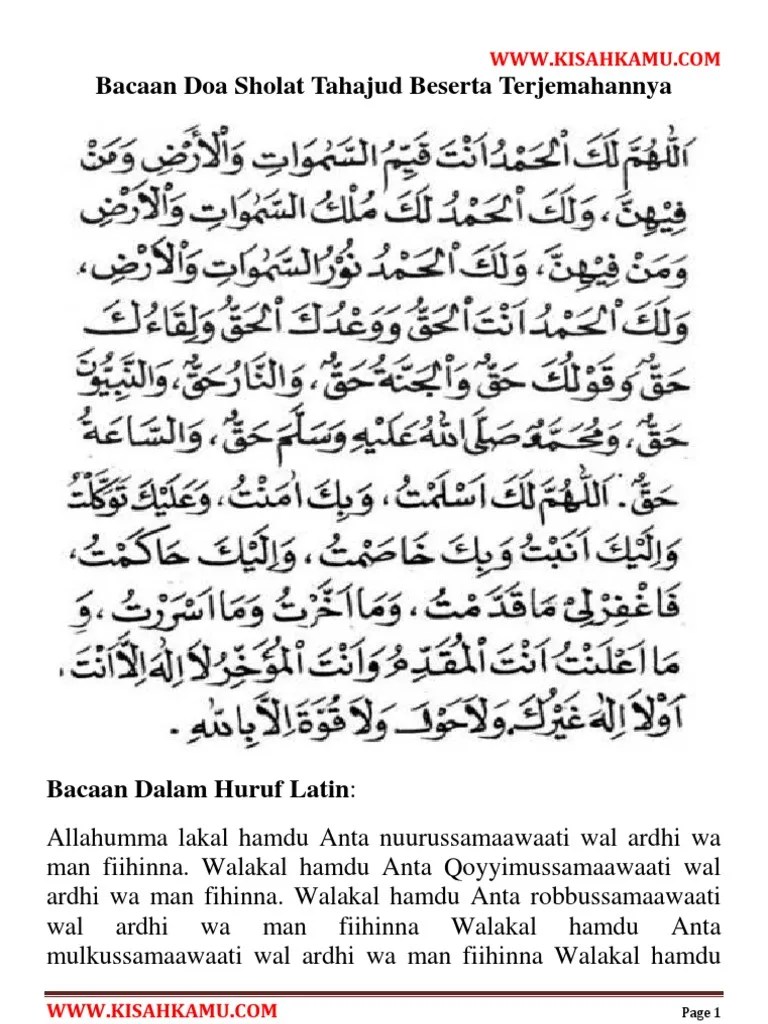 WWW.KISAHKAMU.COM
Bacaan Doa Sholat Tahajud Beserta Terjemahannya
اَللّٰهُمَّ لَكَ الْحَمْدُ اَنْتَ قَيِّمُ السَّمٰوَاتِ وَالْأَرْضِ وَمَنْ
فِيْهِنَّ، وَلَكَ الْحَمْدُ لَكَ مُلْكُ السَّمٰوَاتِ وَالْاَرْضِ
وَمَنْ فِيْهِنَّ، وَلَكَ الْحَمْدُ نُوْرُ السَّمٰوَاتِ وَالْاَرْضِ،
وَلَكَ الْحَمْدُ اَنْتَ الْحَقُّ وَوَعْدُكَ الْحَقُّ وَلِقَاءُكَ
حَقٌّ وَقَوْلُكَ حَقٌّ وَالْجَنَّةُ حَقٌّ، وَالنَّارُ حَقٌّ، وَالنَّبِيُّوْنَ
حَقٌّ، وَمُحَمَّدٌ صَلَّى اللهُ عَلَيْهِ وَسَلَّمَ حَقٌّ، وَالسَّاعَةُ
حَقٌّ. اَللّٰهُمَّ لَكَ اَسْلَمْتُ، وَبِكَ اٰمَنْتُ، وَعَلَيْكَ تَوَكَّلْتُ
وَاِلَيْكَ اَنَبْتُ وَبِكَ خَاصَمْتُ، وَاِلَيْكَ حَاكَمْتُ،
فَاغْفِرْلِيْ مَا قَدَّمْتُ، وَمَا اَخَّرْتُ وَمَا اَسْرَرْتُ، وَ
مَا اَعْلَنْتُ اَنْتَ الْمُقَدِّمُ وَاَنْتَ الْمُؤَخِّرُ لَا اِلٰهَ اِلَّا اَنْتَ،
اَوْلَا اِلٰهَ غَيْرُكَ، وَلَا حَوْلَ وَلَا قُوَّةَ اِلَّا بِاللهِ.
Bacaan Dalam Huruf Latin:
Allahumma lakal hamdu Anta nuurussamaawaati wal ardhi wa
man fiihinna. Walakal hamdu Anta Qoyyimussamaawaati wal
ardhi wa man fihinna. Walakal hamdu Anta robbussamaawaati
wal ardhi wa man fiihinna Walakal hamdu Anta
mulkussamaawaati wal ardhi wa man fiihinna Walakal hamdu
WWW.KISAHKAMU.COM Page 1